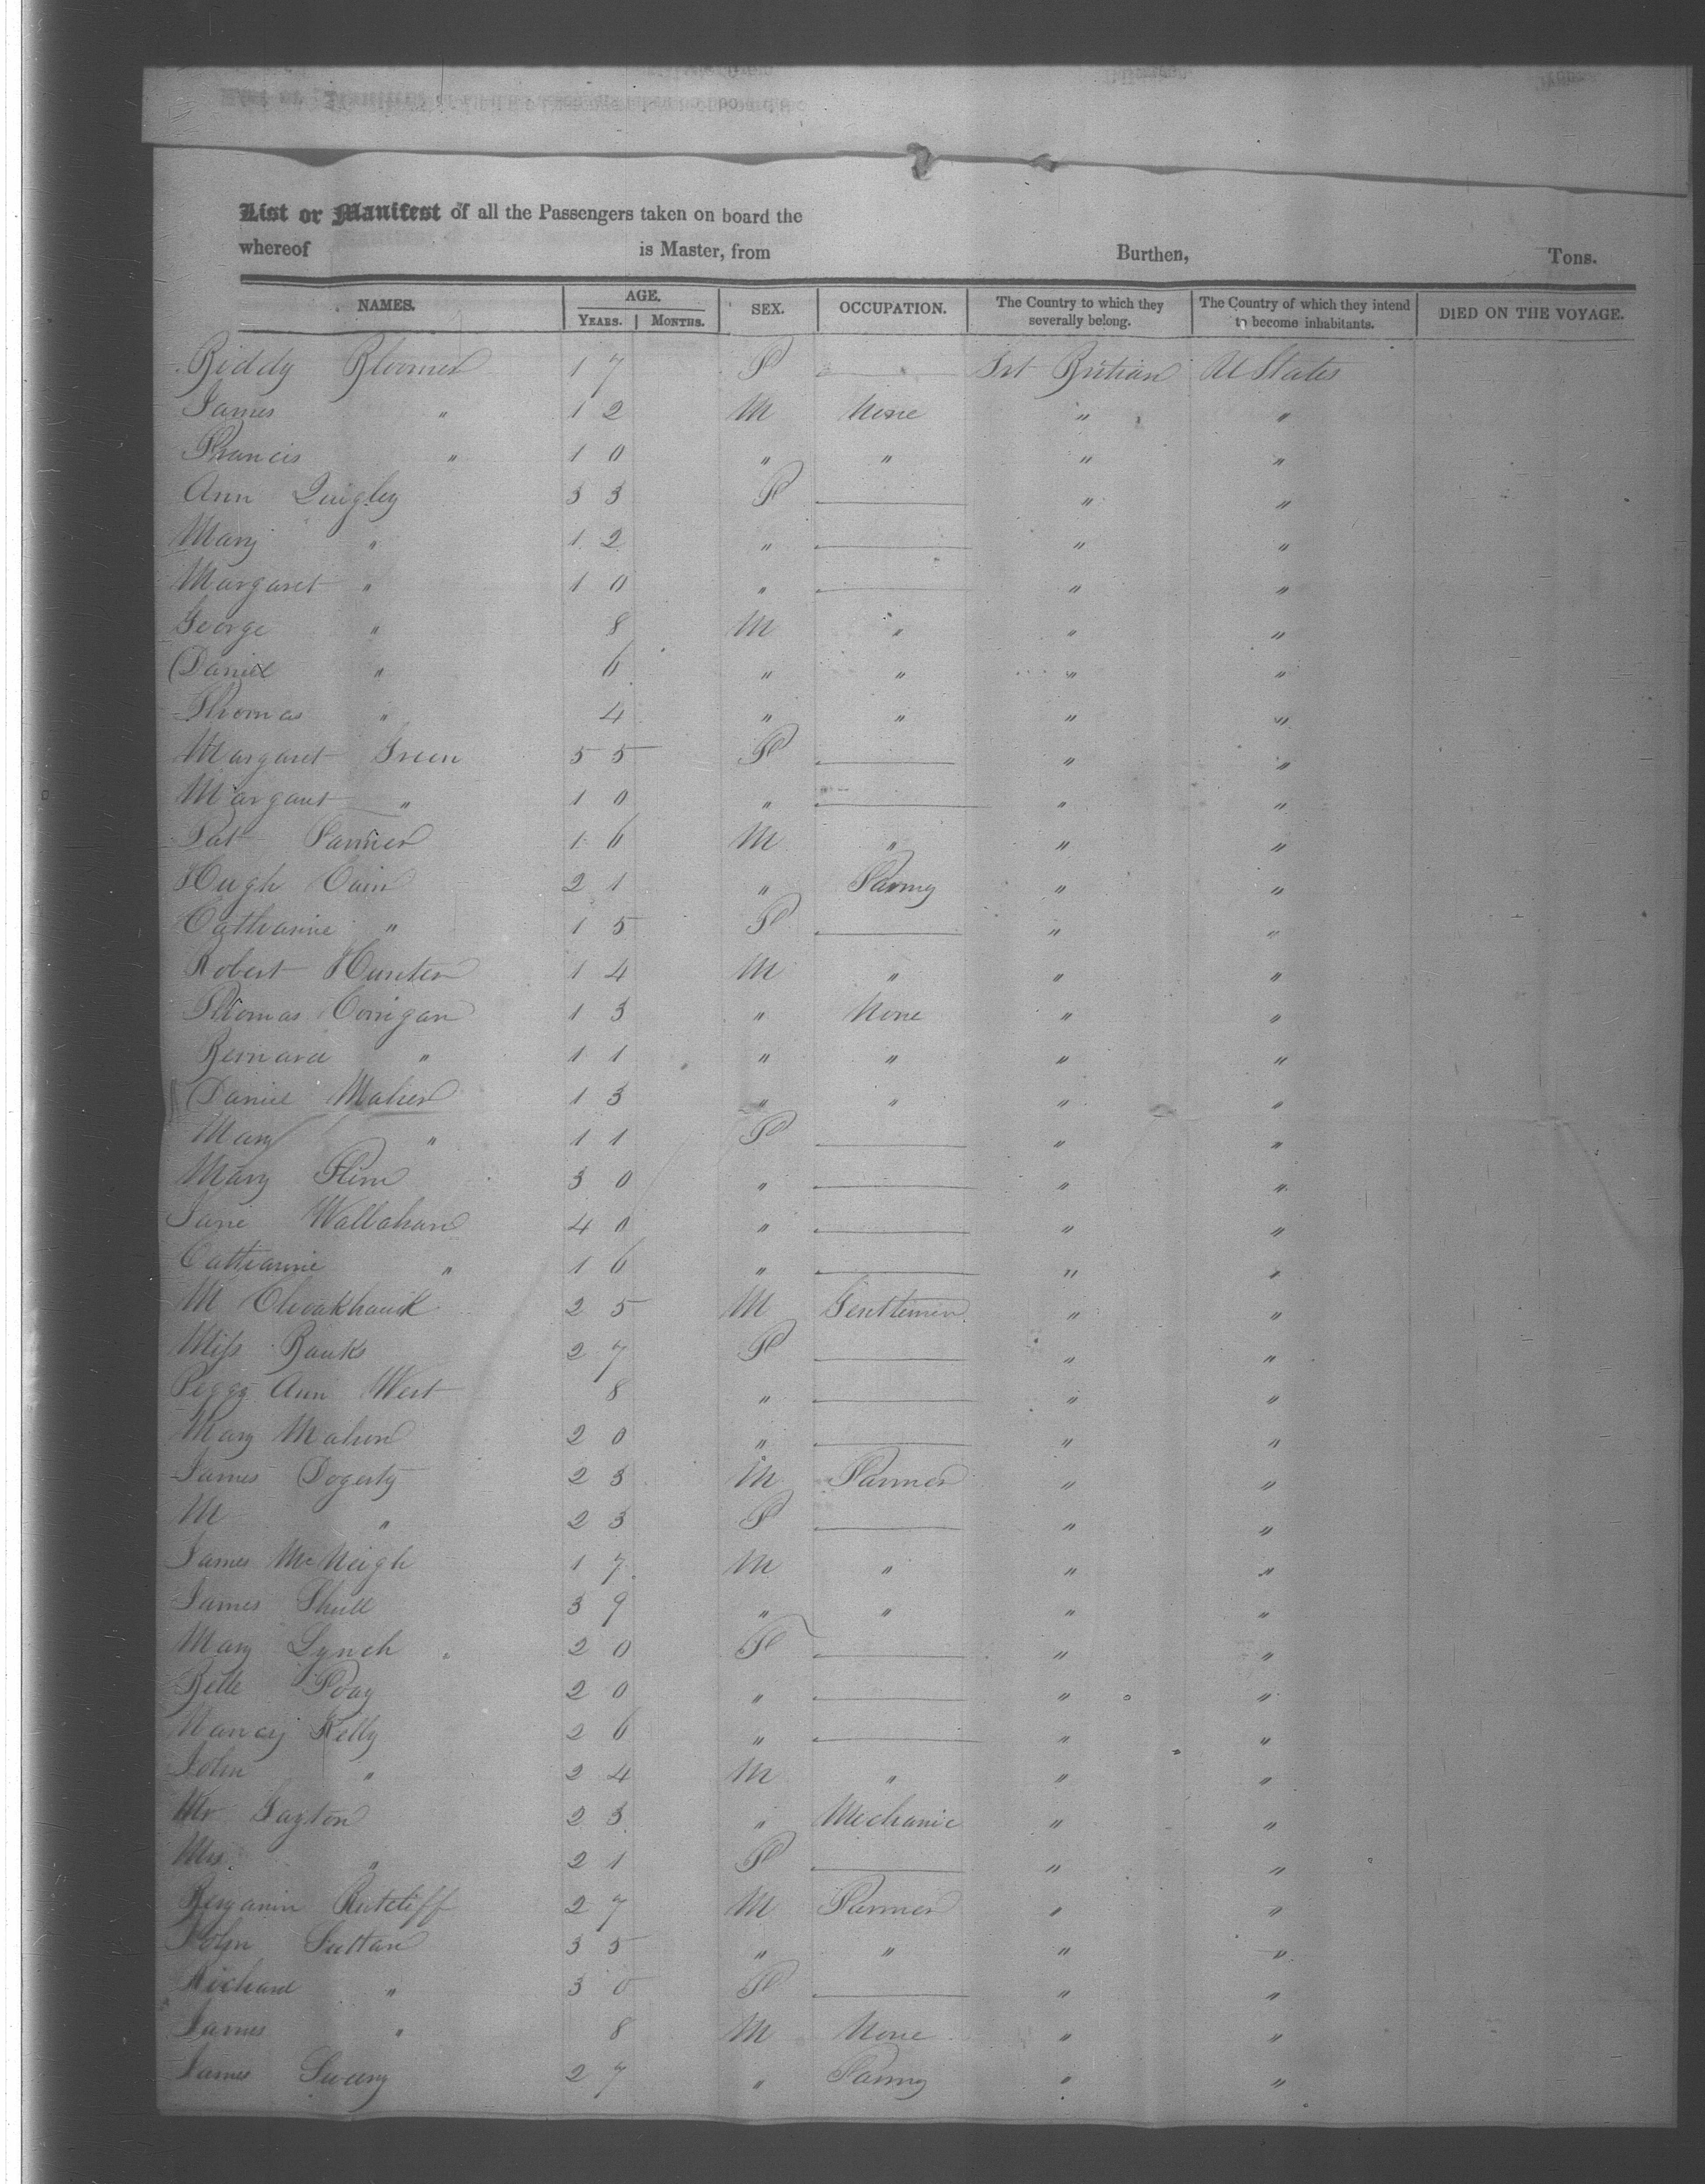 List or Manifest of all the Passengers taken on board the
whereof is Master, from Burthen, Tons.
NAMES. AGE. SEX. OCCUPATION. The Country to which they severally belong. The Country of which they intend to become inhabitants. DIED ON THE VOYAGE.
YEARS. MONTHS.
Biddy Bloomer 17 F — Grt Britian U States
James " 12 M None " "
Francis " 10 " " " "
Ann Quigley 33 F — " "
Mary " 12 " — " "
Margaret " 10 " — " "
George " 8 M " " "
Daniel " 6 " " " "
Thomas " 4 " " " "
Margaret Green 55 F — " "
Margaret " 10 " — " "
Pat Farmer 16 M " " "
Hugh Cain 21 " Farmg " "
Catharine " 15 F — " "
Robert Hunter 14 M " " "
Thomas Corrigan 13 " None " "
Bernard " 11 " " " "
Daniel Maher 13 " " " "
Mary " 11 F — " "
Mary Flinn 30 " — " "
Jane Wallahan 40 " — " "
Catharine " 16 " — " "
M 25 M Gentlemen " "
Miss Banks 27 F — " "
Peggy Ann West 8 " — " "
Mary Mahon 20 " — " "
James Dogerty 23 M Farmer " "
M " 23 F — " "
James McNeigh 17 M " " "
James Shull 39 " " " "
Mary Lynch 20 F — " "
Belle Poag 20 " — " "
Nancy Kelly 26 " — " "
John " 24 M " " "
Mr Gayton 23 " Mechanic " "
Mrs. " 21 F — " "
Benjamin Rutcliff 27 M Farmer " "
John Sultan 35 " " " "
Richard " 30 F — " "
James " 8 M None " "
James Sweeny 27 " Farmg " "